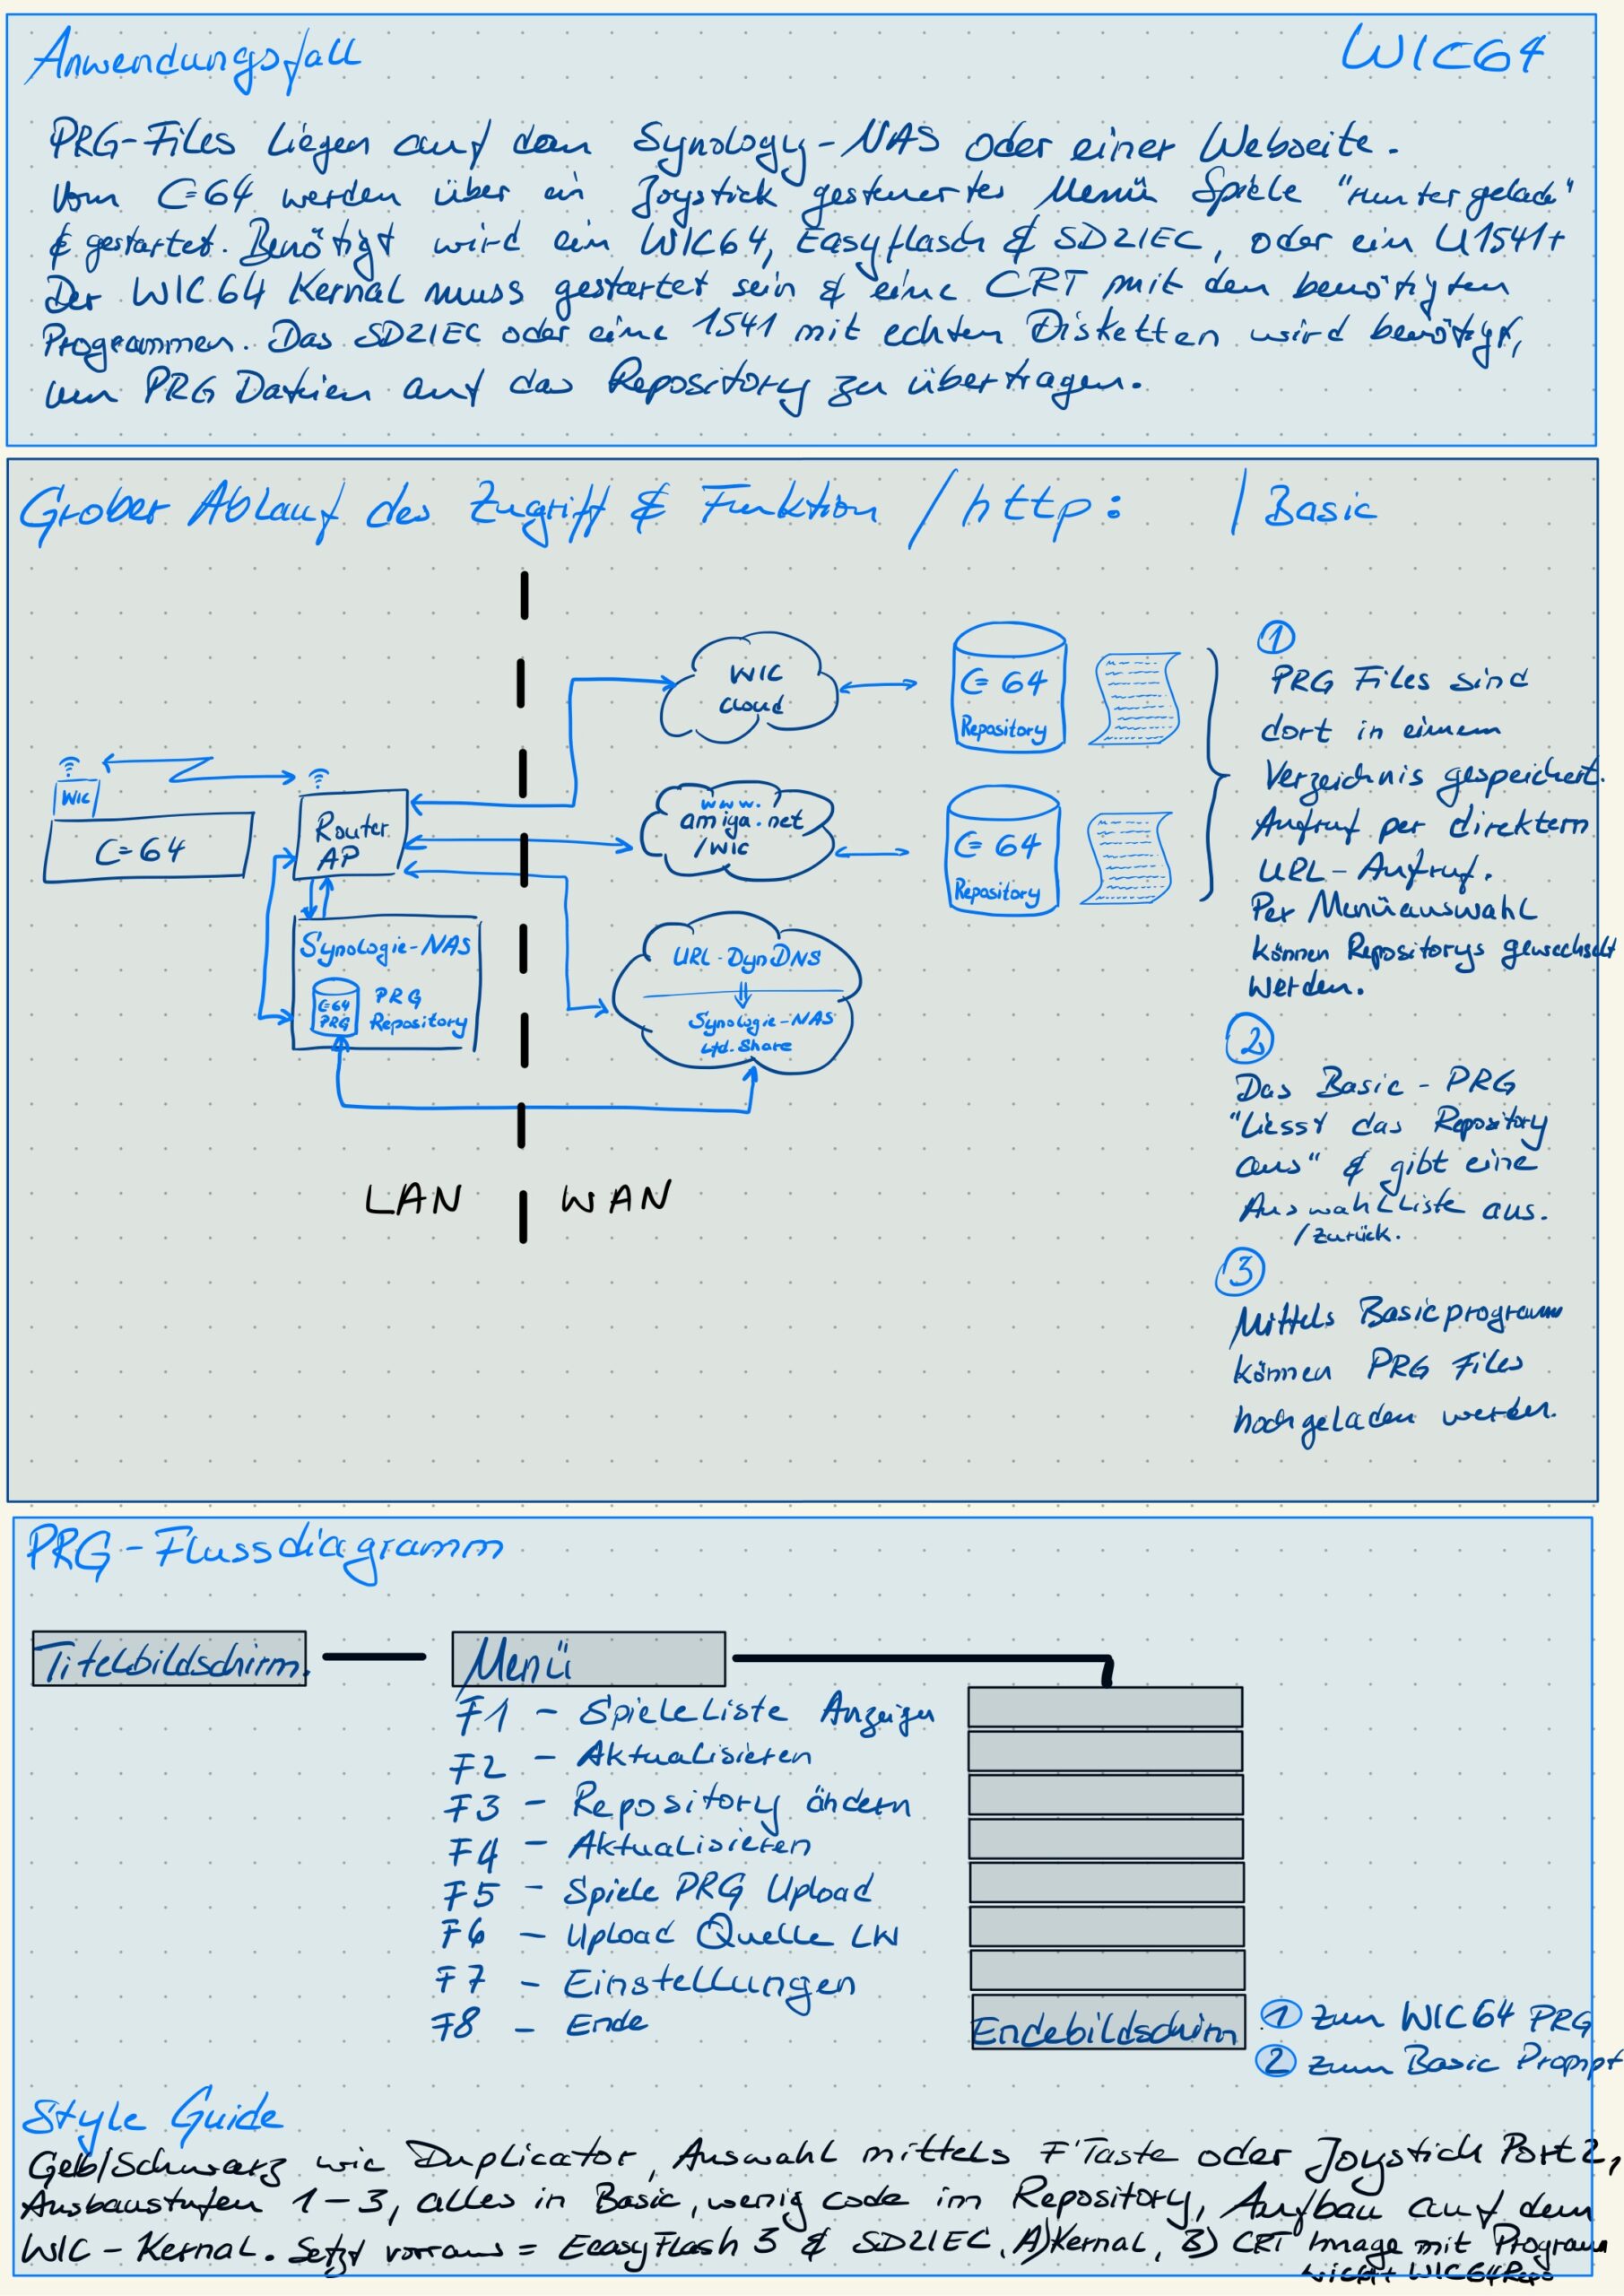 Anwendungsfall
WIC64
PRG-Files liegen auf dem Synology-NAS oder einer Webseite.
Vom C=64 werden über ein Joystick gesteuertes Menü Spiele "runtergelade"
& gestartet. Benötigt wird ein WIC64, Easyflasch & SD2IEC, oder ein U1541+
Der WIC64 Kernal muss gestartet sein & eine CRT mit den benötigten
Programmen. Das SD2IEC oder eine 1541 mit echten Disketten wird benötigt,
um PRG Dateien auf das Repository zu übertragen.
Grober Ablauf des Zugriff & Funktion / http: / Basic
WIC
cloud
C=64
Repository
WIC
C=64
Router
AP
www.
amiga.net
/wic
C=64
Repository
Synologie-NAS
C=64
PRG
PRG
Repository
URL-DynDNS
Synologie-NAS
Ltd. Share
LAN
WAN
①
PRG Files sind
dort in einem
Verzeichnis gespeichert.
Aufruf per direktem
URL-Aufruf.
Per Menüauswahl
können Repositorys gewechselt
werden.
②
Das Basic-PRG
"liesst das Repository
aus" & gibt eine
Auswahlliste aus.
/zurück.
③
Mittels Basicprogramm
können PRG Files
hochgeladen werden.
PRG-Flussdiagramm
Titelbildschirm.
Menü
F1 - Spieleliste Anzeigen
F2 - Aktualisieren
F3 - Repository ändern
F4 - Aktualisieren
F5 - Spiele PRG Upload
F6 - Upload Quelle LW
F7 - Einstellungen
F8 - Ende
Endebildschirm
① zum WIC64 PRG
② zum Basic Prompt
Style Guide
Gelb/Schwarz wie Duplicator, Auswahl mittels F'Taste oder Joystick Port2,
Ausbaustufen 1-3, alles in Basic, wenig code im Repository, Aufbau auf dem
WIC-Kernal. Setzt vorraus = EeasyFlash 3 & SD2IEC, A)Kernal, B) CRT Image mit Programm
WIC64Repo